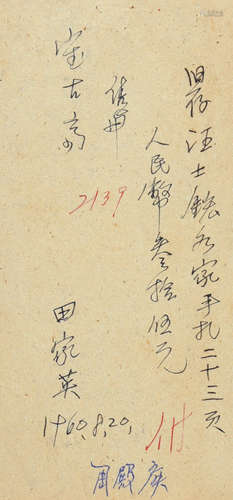 旧存汪士鋐名家手扎二十三页
人民幣叁拾伍元
宝古斋
2139
田家英
1960.8.20.
付
周殿侯